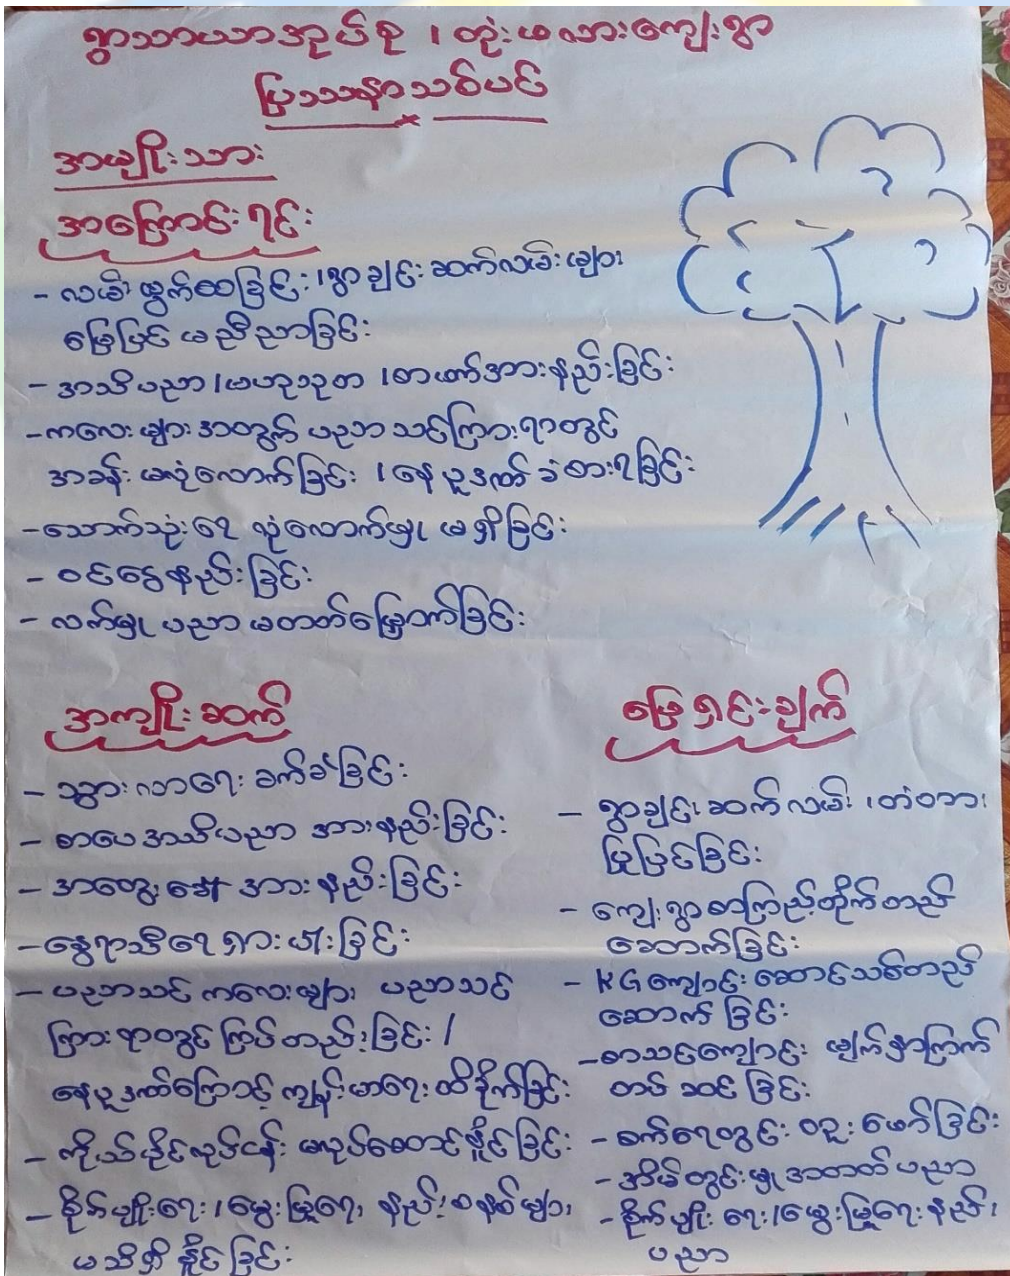 ရွာသာယာအုပ်စု ၊ တုံးမလားကျေးရွာ
ပြဿနာသစ်ပင်
အမျိုးသား
အကြောင်းရင်း
- လမ်း ဖွက်ထခြင်း ၊ ရွာချင်းဆက်လမ်းများ
မြေပြင် မညီညာခြင်း
- အသိပညာ ၊ ဗဟုသုတ ၊ စာဖတ်အားနည်းခြင်း
- ကလေးများအတွက် ပညာသင်ကြားရာတွင်
အခန်း မလုံလောက်ခြင်း ၊ နေပူဒဏ် ခံစားရခြင်း
- သောက်သုံးရေ လုံလောက်မှု မရှိခြင်း
- ဝင်ငွေနည်းခြင်း
- လက်မှု ပညာ မတတ်မြောက်ခြင်း
အကျိုးဆက်
- သွားလာရေး ခက်ခဲခြင်း
- စာပေအသိပညာ အားနည်းခြင်း
- အတွေးခေါ် အားနည်းခြင်း
- နွေရာသီရေ ရှားပါးခြင်း
- ပညာသင် ကလေးများ ပညာသင်
ကြားရာတွင် ကြပ်တည်းခြင်း /
နေပူဒဏ်ကြောင့် ကျန်းမာရေး ထိခိုက်ခြင်း
- ကိုယ်ပိုင်လုပ်ငန်း မလုပ်ဆောင်နိုင်ခြင်း
- စိုက်ပျိုးရေး ၊ မွေးမြူရေး နည်းစနစ်များ
မသိရှိ နိုင်ခြင်း
ဖြေရှင်းချက်
- ရွာချင်းဆက်လမ်း ၊ တံတား
ပြုပြင်ခြင်း
- ကျေးရွာစာကြည့်တိုက်တည်
ဆောက်ခြင်း
- KG ကျောင်းဆောင်သစ်တည်
ဆောက်ခြင်း
- စာသင်ကျောင်း မျက်နှာကြက်
တပ်ဆင်ခြင်း
- စက်ရေတွင်း တူးဖော်ခြင်း
- အိမ်တွင်းမှု အတတ်ပညာ
- စိုက်ပျိုးရေး ၊ မွေးမြူရေး နည်း
ပညာ